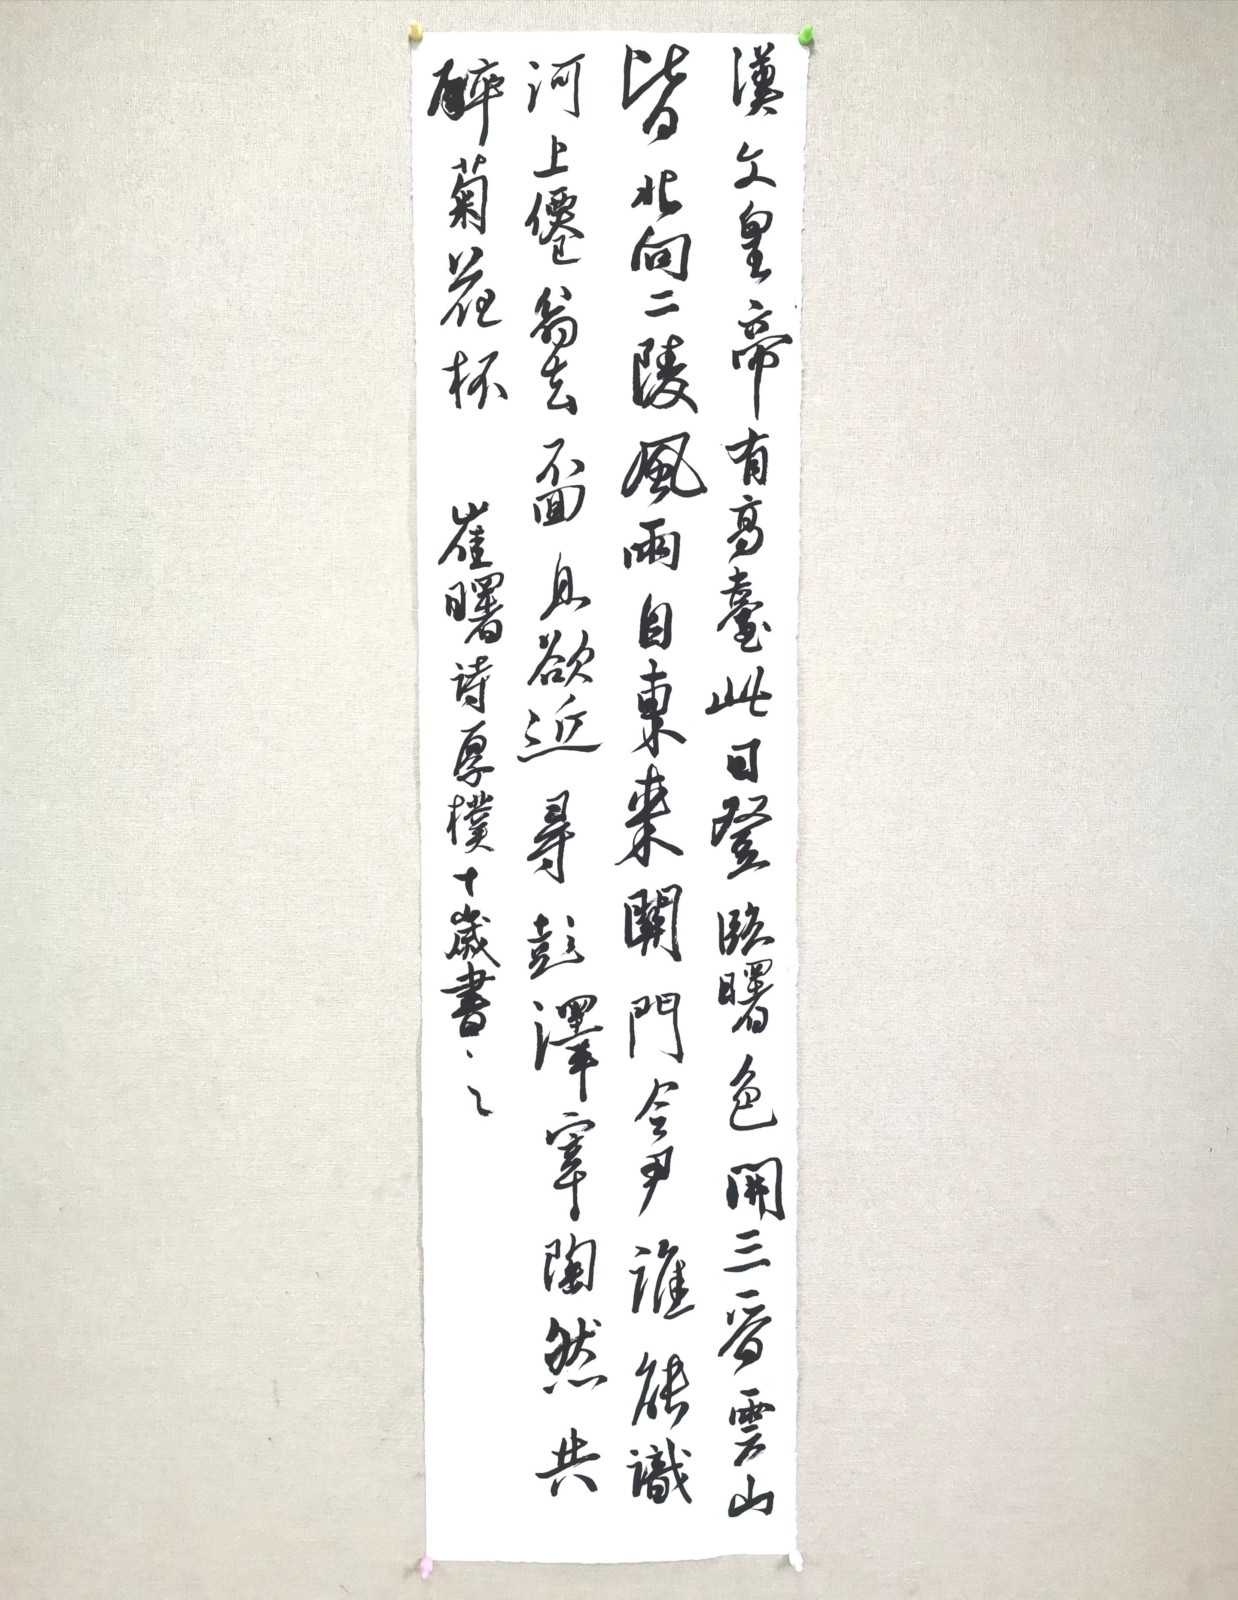 漢文皇帝有高臺此日登臨曙色開三晉雲山
皆北向二陵風雨自東來關門令尹誰能識
河上僊翁去不回且欲近尋彭澤宰陶然共
醉菊花杯 崔曙詩厚樸十歲書